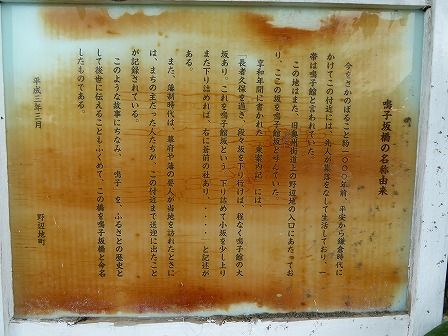 鳴子坂橋の名称由来
今をさかのぼること約一〇〇〇年前、平安から鎌倉時代に
かけてこの付近には、先人が集落をなして生活しており、一
帯は鳴子館と言われていた。
この地はまた、旧奥州街道上の野辺地の入口にあたってお
り、ここの坂を鳴子館坂と呼んでいた。
享和年間に書かれた「東案内記」には、
「長者久保を過ぎ、段々坂を下り行けば、程なく鳴子館の大
坂あり。これを鳴子館坂という。下り詰めて小坂を少し上り
また下り詰めれば、右に蒼前の社あり・・・・・と記述が
ある。
また、藩制時代は、幕府や藩の要人が当地を訪れたときに
は、まちの主だった人たちが、この付近まで送迎に出たこと
が記録されている。
このような故事にちなみ、"鳴子"を、ふるさとの歴史と
して後世に伝えることもふくめて、この橋を鳴子坂橋と命名
したものである。
平成三年三月
野辺地町